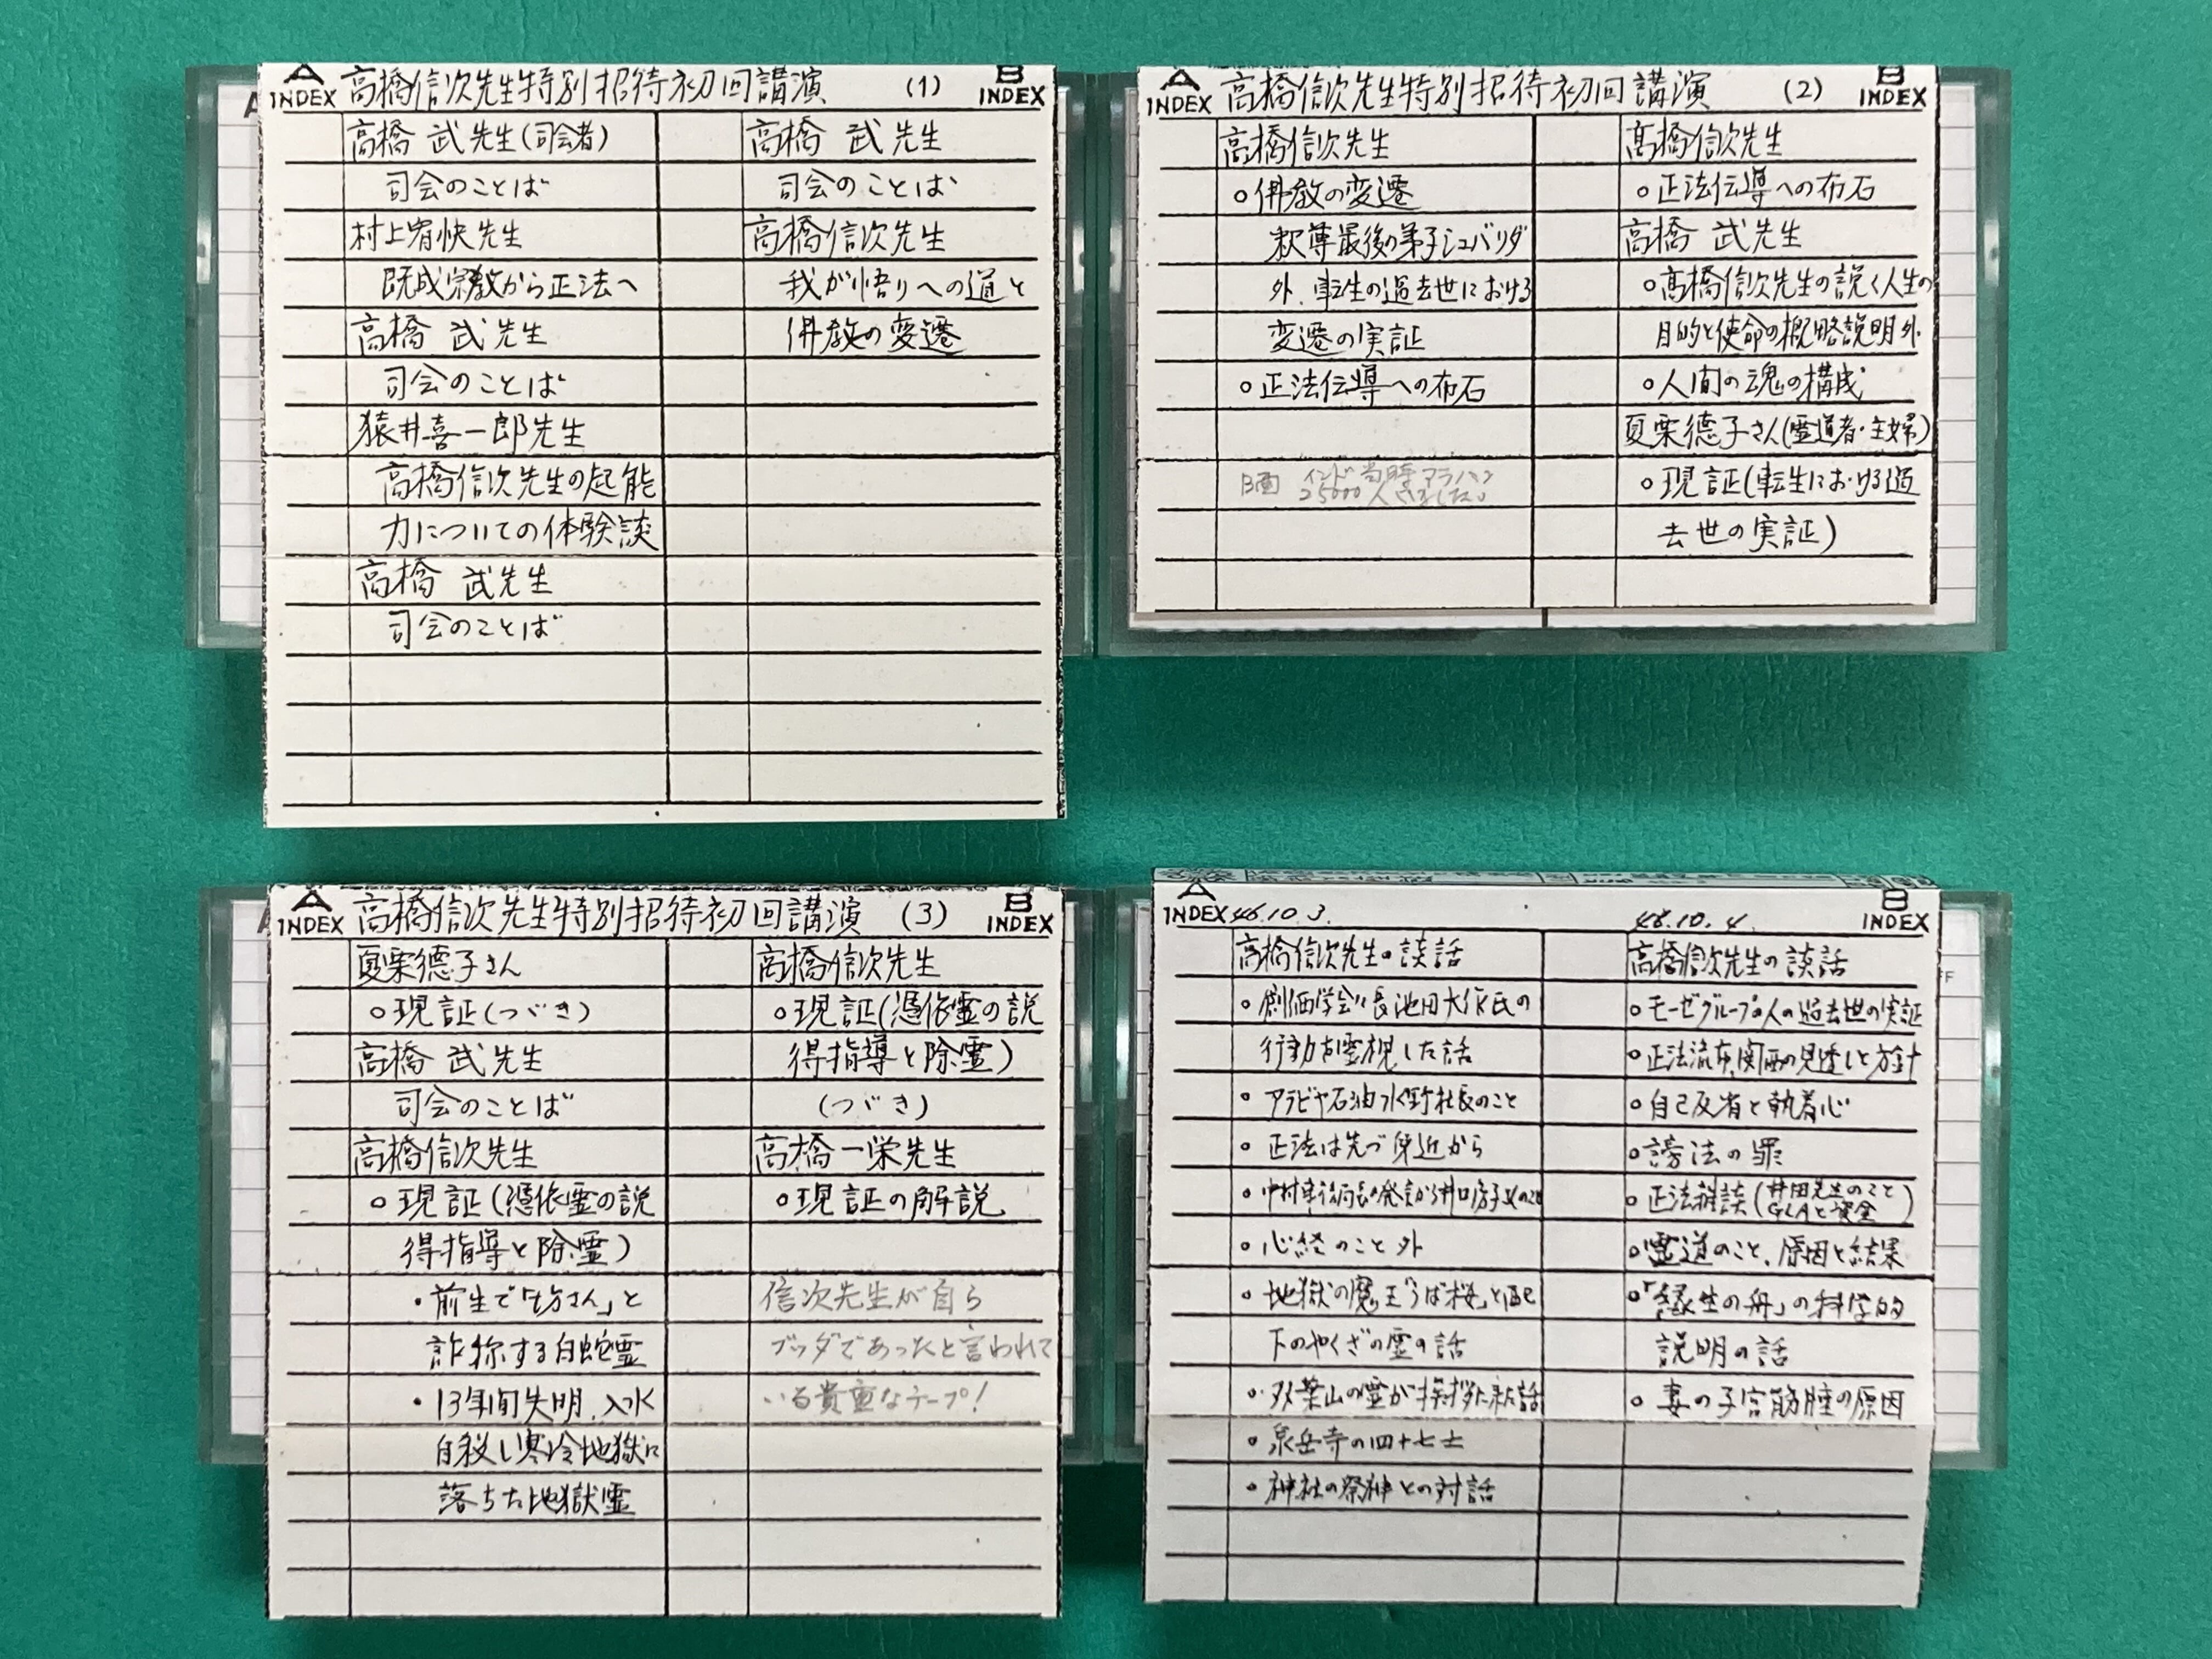 A INDEX 高橋信次先生特別招待初回講演 (1) B INDEX
高橋 武先生(司会者)
司会のことば
村上宥快先生
既成宗教から正法へ
高橋 武先生
司会のことば
猿井喜一郎先生
高橋信次先生の起能
力についての体験談
高橋 武先生
司会のことば
高橋 武先生
司会のことば
高橋信次先生
我が悟りへの道と
佛教の変遷
A INDEX 高橋信次先生特別招待初回講演 (2) B INDEX
高橋信次先生
○佛教の変遷
釈尊最後の弟子シュバリダ
外、転生の過去世における
変遷の実証
○正法伝導への布石
B面 インド当時アラハン
25000人
高橋信次先生
○正法伝導への布石
高橋 武先生
○高橋信次先生の説く人生の
目的と使命の概略説明外
○人間の魂の構成
夏栗徳子さん(霊道者・主婦)
○現証(転生における過
去世の実証)
A INDEX 高橋信次先生特別招待初回講演 (3) B INDEX
夏栗徳子さん
○現証(つづき)
高橋 武先生
司会のことば
高橋信次先生
○現証(憑依霊の説
得指導と除霊)
・前生で「坊さん」と
詐称する白蛇霊
・13年間失明、入水
自殺し寒冷地獄に
落ちた地獄霊
高橋信次先生
○現証(憑依霊の説
得指導と除霊)
(つづき)
高橋一栄先生
○現証の解説
信次先生が自ら
ブッダであったと言われて
いる貴重なテープ!
A INDEX 46.10.3. 46.10.4. B INDEX
高橋信次先生の談話
○創価学会々長池田大作氏の
行動を霊視した話
○アラビヤ石油水野社長のこと
○正法は先づ身近から
○心経のこと外
○地獄の魔王「うば桜」と配
下のやくざの霊の話
○双葉山の霊が挨拶に来た話
○泉岳寺の四十七士
○神社の祭神との対話
高橋信次先生の談話
○モーゼグループの人の過去世の実証
○正法流布、関西の見透しと方針
○自己反省と執着心
○謗法の罪
○正法雑談(井田先生のこと
GLAと資金)
○霊道のこと、原因と結果
○「縁生の舟」の科学的
説明の話
○妻の子宮筋腫の原因